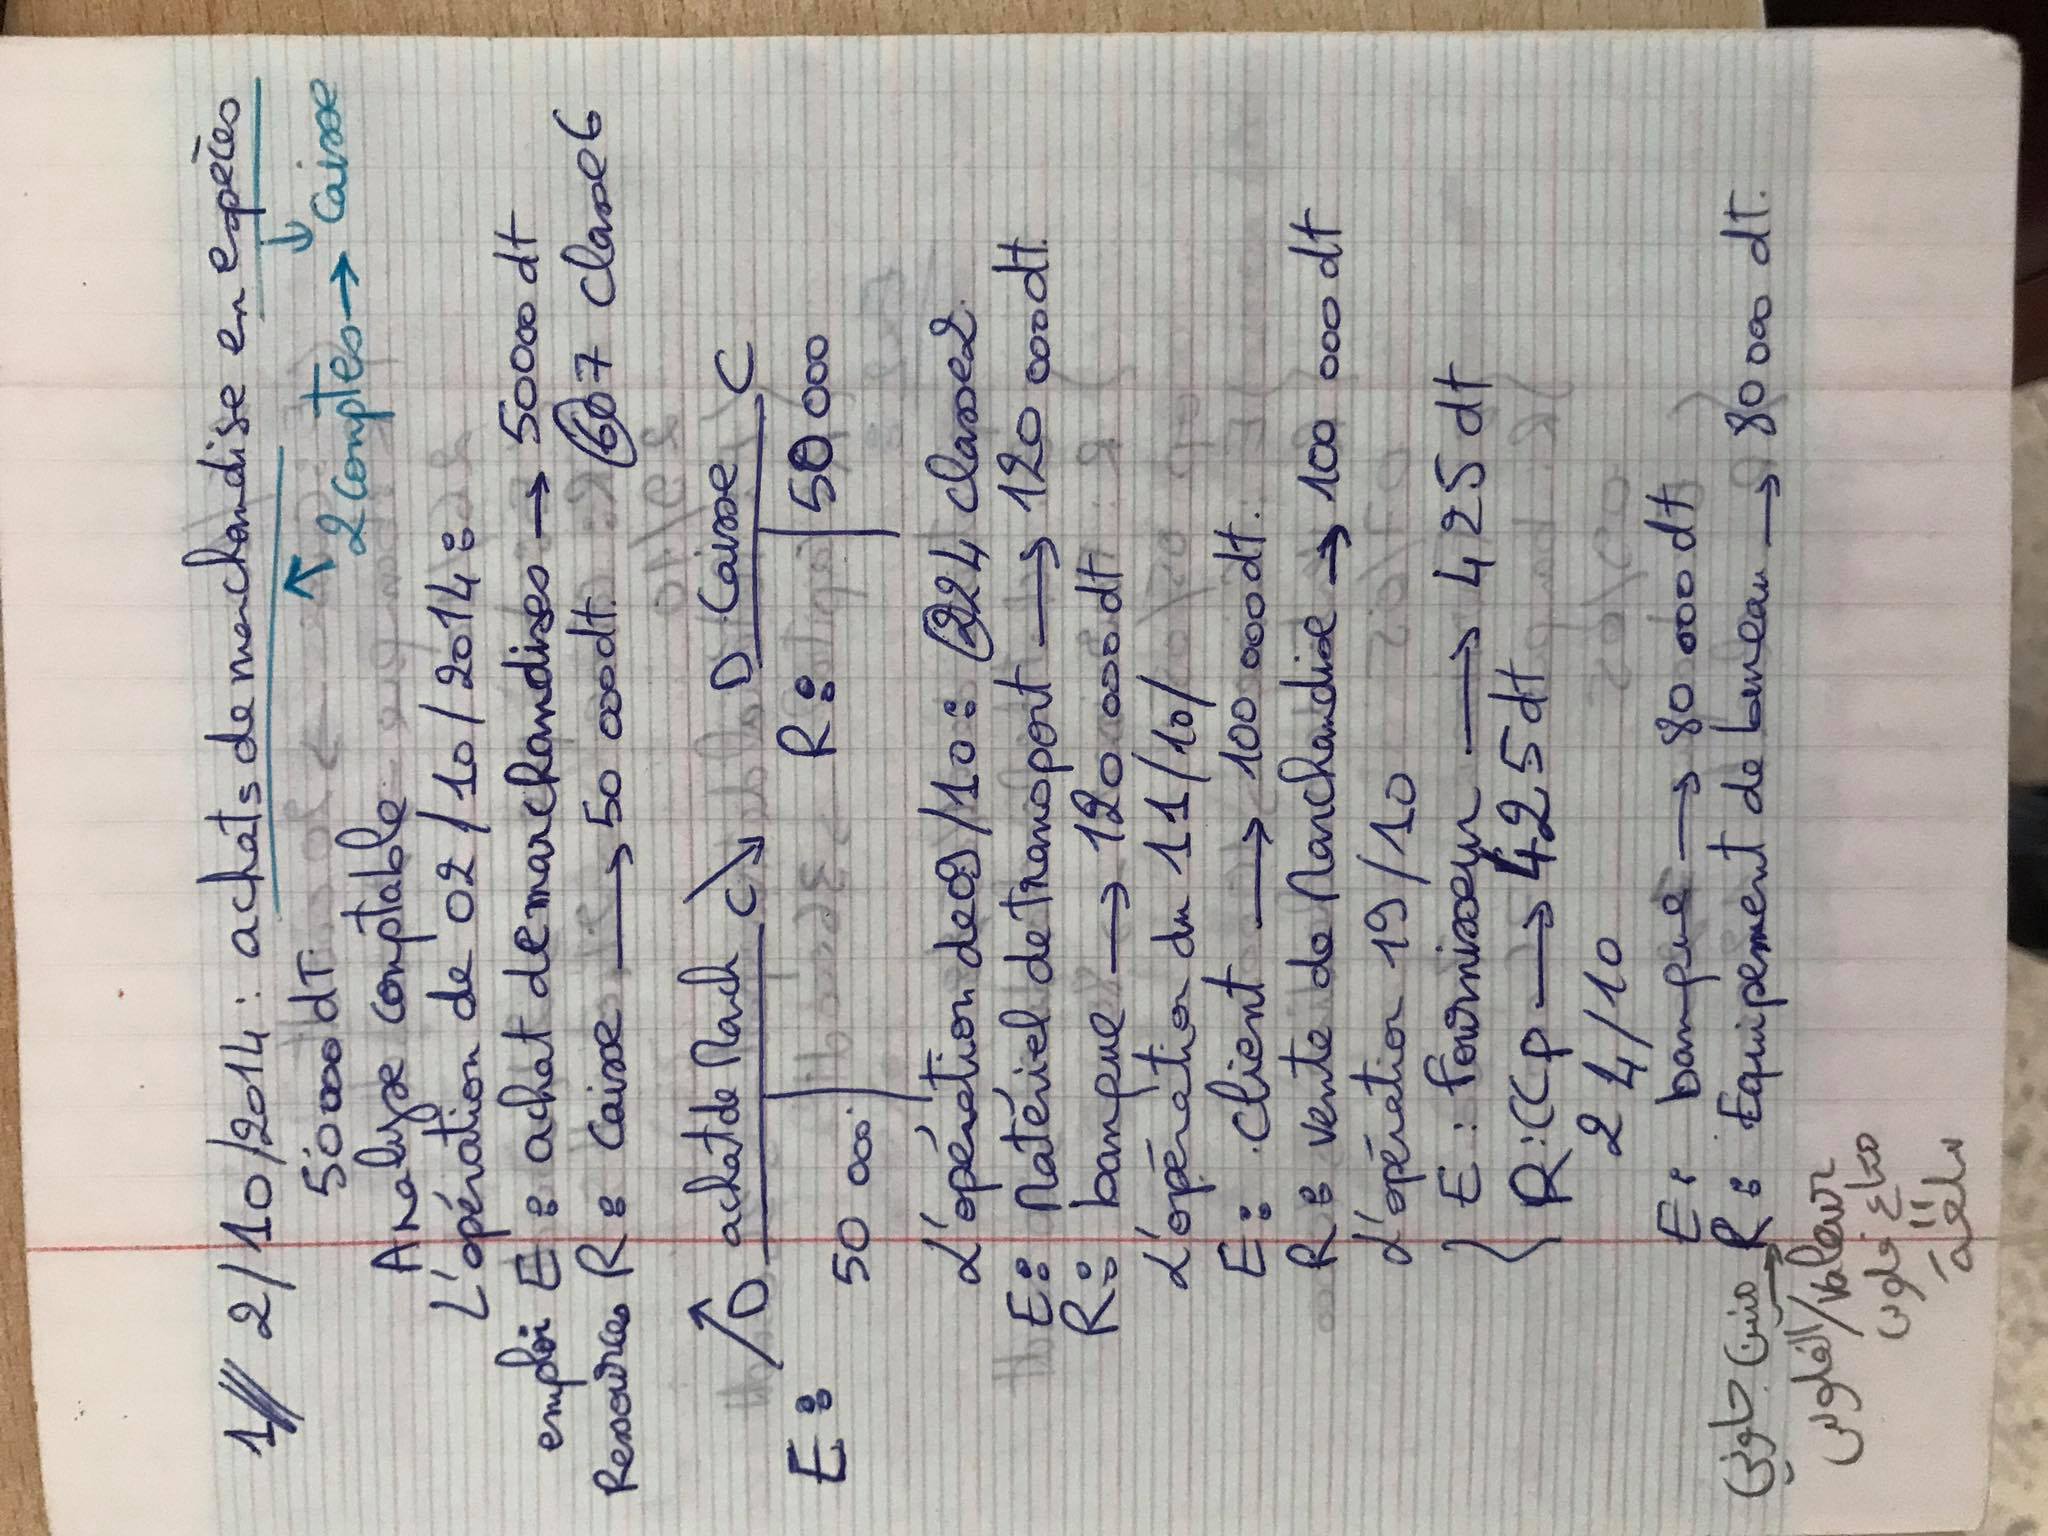 1/// 2/10/2014: achats de marchandise en espèces
50000 dT
2 comptes → Caisse
Analyse comptable
L'opération de 02/10/2014:
emploi E: achat de marchandises → 50000 dt
Ressources R: Caisse → 50 000dt. 607 classe 6
D achat de March C D Caisse C
E: 50 000. R: 50 000
L'opération de 09/10: 224 classe 2.
E: Matériel de Transport → 120 000dt.
R: banque → 120 000 dt
L'opération du 11/10/
E: Client → 100 000dt.
R: vente de Marchandise → 100 000 dt
L'opération 19/10
E: Fournisseur → 425 dt
R: CCP → 425 dt
24/10
E: banque → 80 000 dt
R: Equipement de bureau → 80 000 dt.
الفلوس/valeur
متاع فلوس